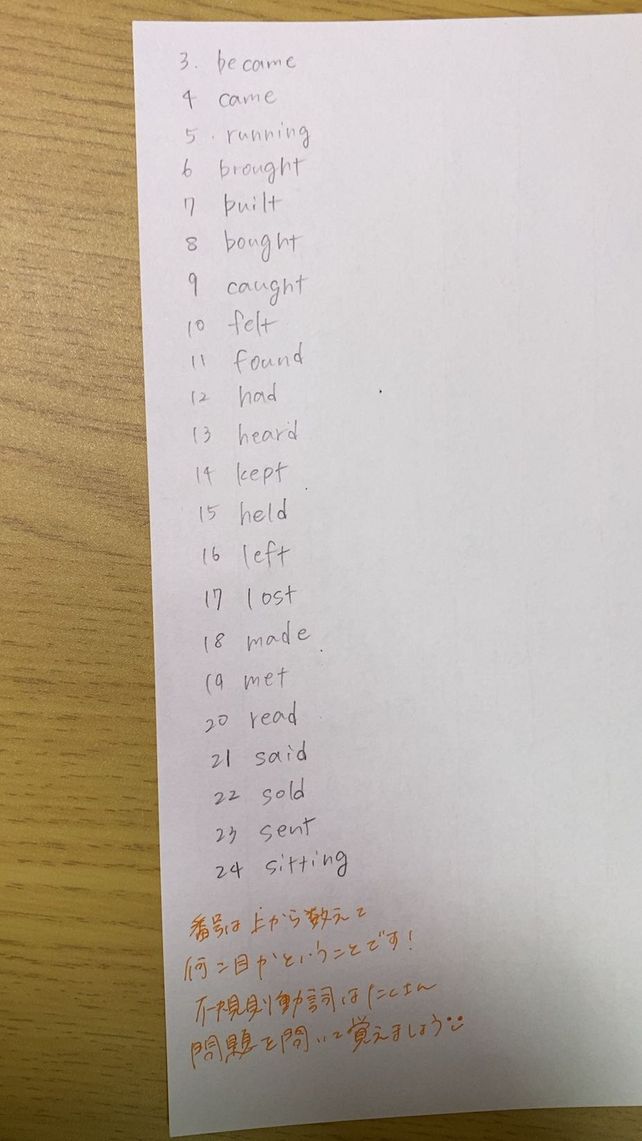 3. became
4 came
5. running
6 brought
7 built
8 bought
9 caught
10 felt
11 found
12 had
13 heard
14 kept
15 held
16 left
17 lost
18 made
19 met
20 read
21 said
22 sold
23 sent
24 sitting
番号は上から数えて
何コ目かということです!
不規則動詞はたくさん
問題を問いて覚えましょう